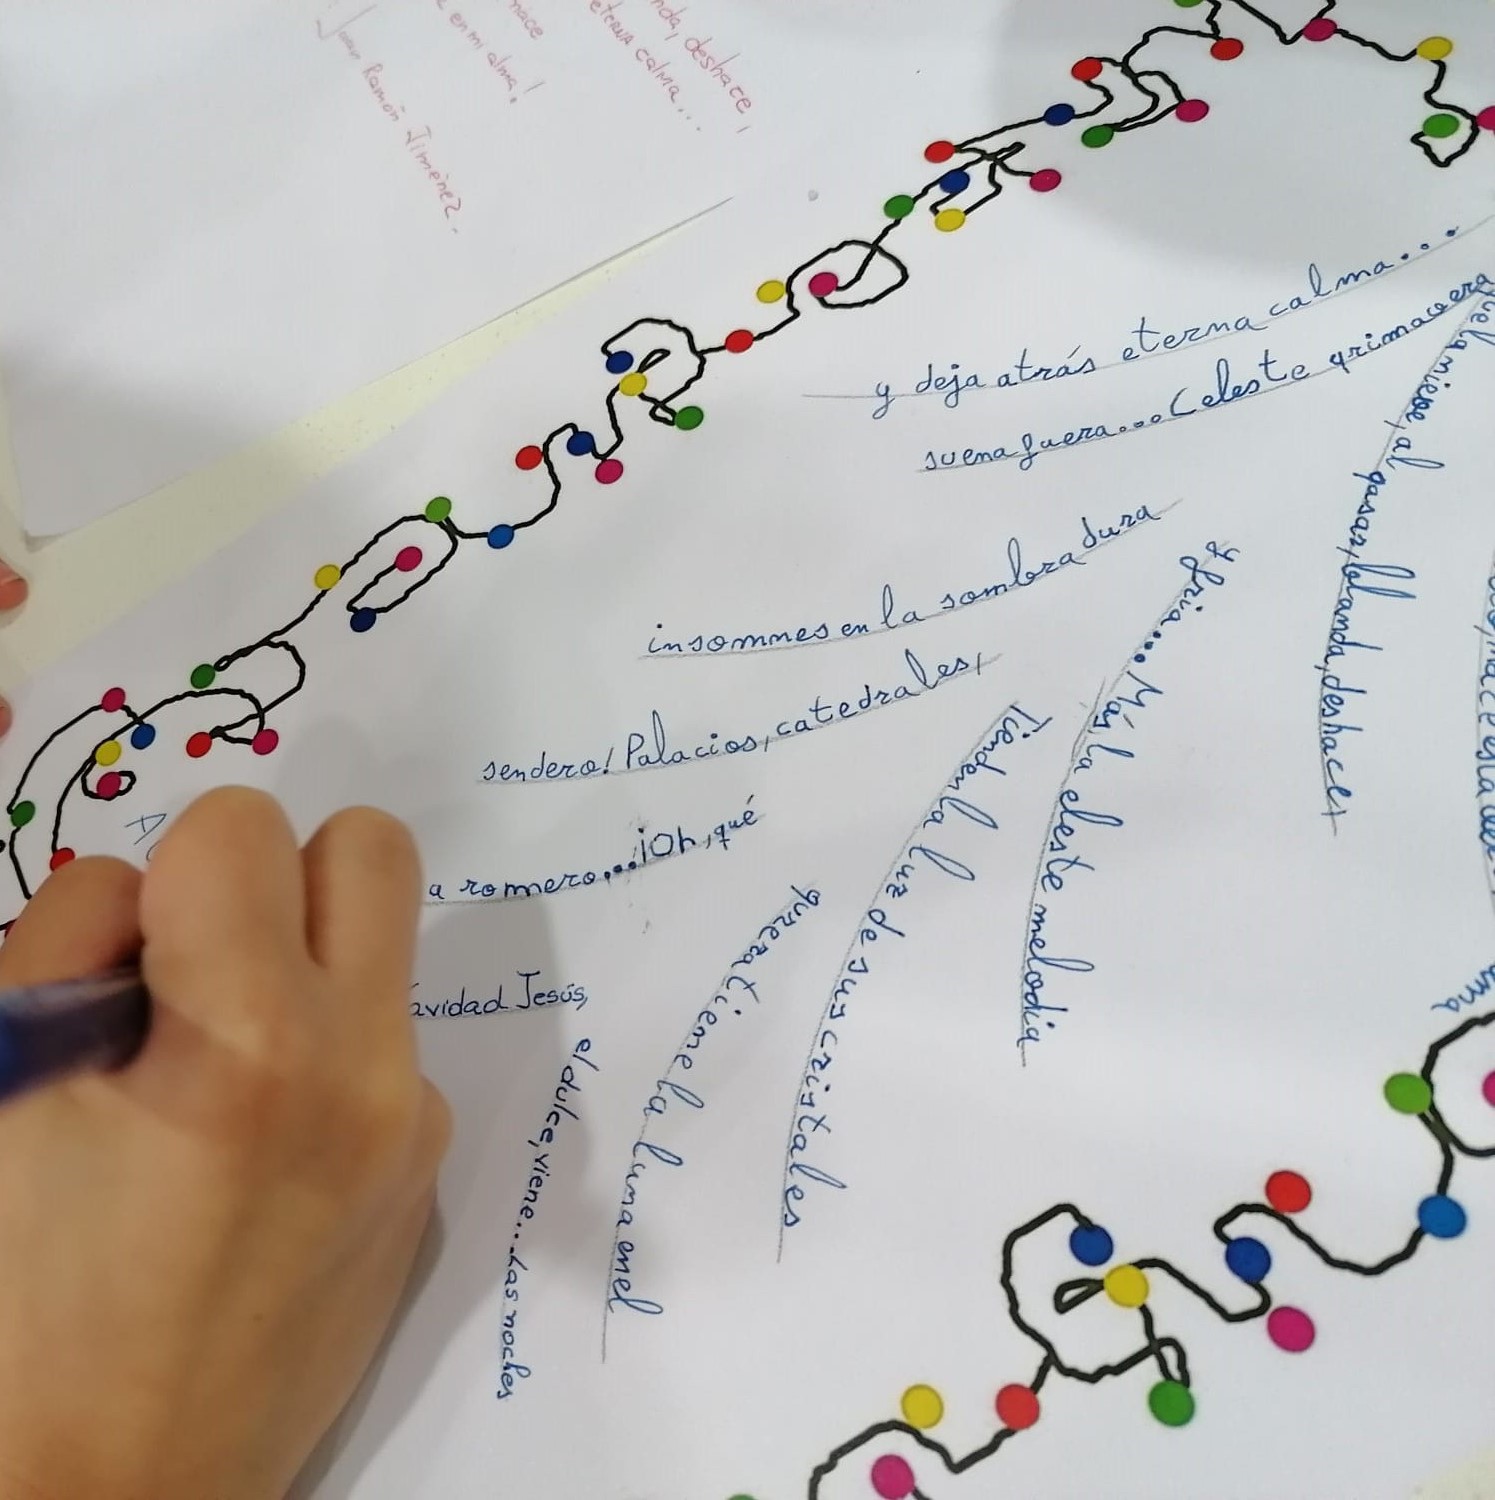 nda, deshace,
eterna calma...
nace
en mi alma!
Juan Ramón Jiménez.
avidad Jesús,
el dulce, viene... Las noches
a romero...¡Oh, qué
pureza tiene la luna en el
sendero! Palacios, catedrales,
Tienden la luz de sus cristales
insomnes en la sombra dura
y fria... Más, la celeste melodia
suena fuera... Celeste primavera
que la nieve, al pasar, blanda, deshace,
y deja atrás eterna calma...